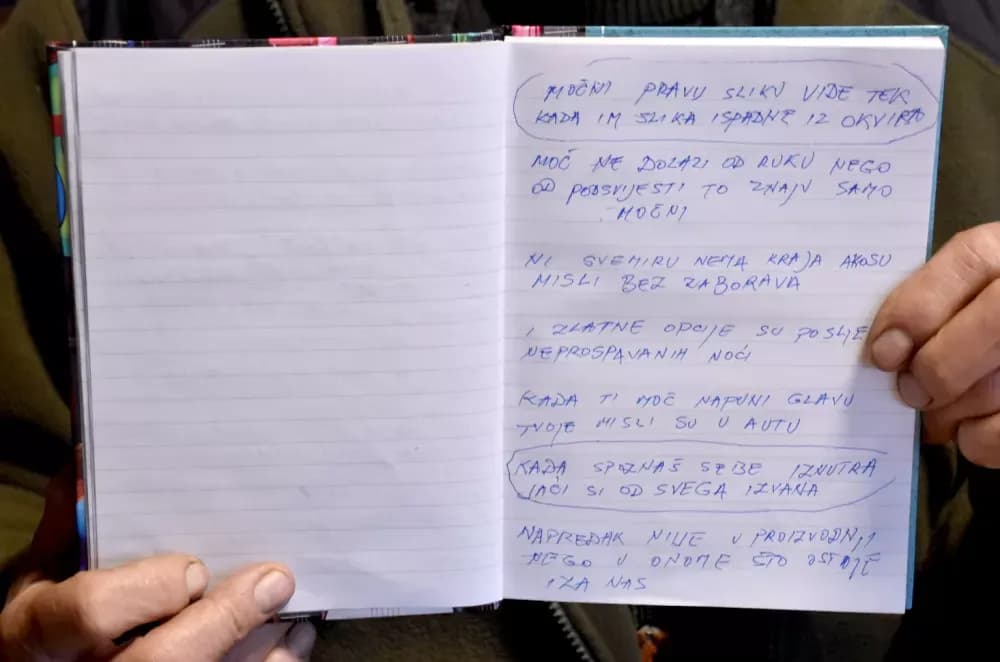 MOĆNI PRAVU SLIKU VIDE TEK
KADA IM SLIKA ISPADNE IZ OKVIRA
MOĆ NE DOLAZI OD RUKU NEGO
OD PODSVIJESTI TO ZNAJU SAMO
MOĆNI
NI SVEMIRU NEMA KRAJA AKOSU
MISLI BEZ ZABORAVA
I ZLATNE OPCIJE SU POSLIJE
NEPROSPAVANIH NOĆI
KADA TI MOĆ NAPUNI GLAVU
TVOJE MISLI SU U AUTU
KADA SPOZNAŠ SEBE IZNUTRA
JAČI SI OD SVEGA IZVANA
NAPREDAK NIJE U PROIZVODNJI
NEGO U ONOME ŠTO OSTAJE
IZA NAS